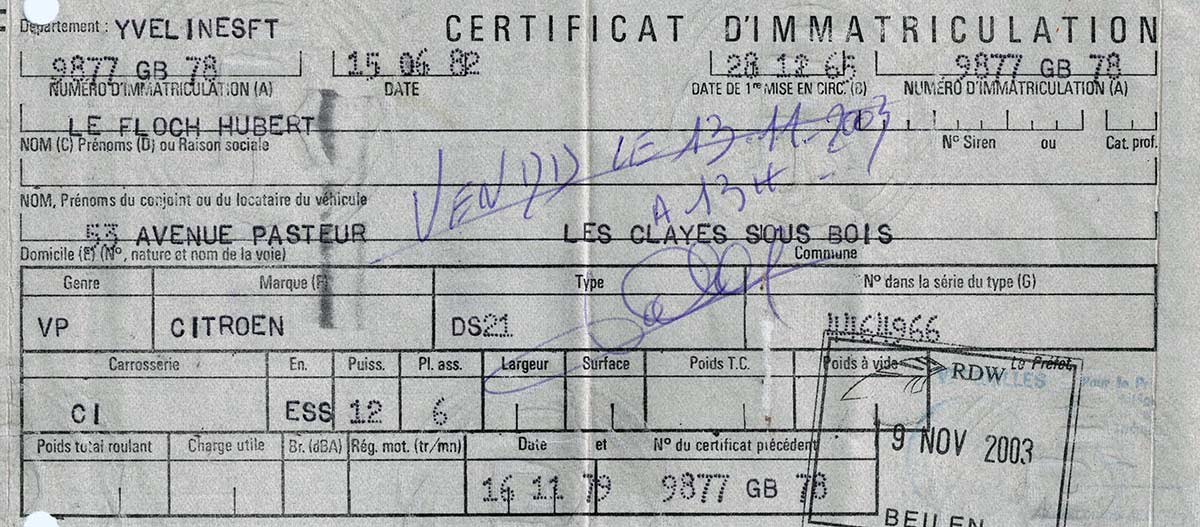 Département : YVELINESFT
CERTIFICAT D'IMMATRICULATION
9877 GB 78 15 06 82 28 12 65 9877 GB 78
NUMÉRO D'IMMATRICULATION (A) DATE DATE DE 1re MISE EN CIRC. (B) NUMÉRO D'IMMATRICULATION (A)
LE FLOCH HUBERT
NOM (C) Prénoms (D) ou Raison sociale N° Siren ou Cat. prof.
VENDU LE 13-11-2003
A 13H
NOM, Prénoms du conjoint ou du locataire du véhicule
53 AVENUE PASTEUR LES CLAYES SOUS BOIS
Domicile (E) (N°, nature et nom de la voie) Commune
Genre Marque (F) Type N° dans la série du type (G)
VP CITROEN DS21
Carrosserie En. Puiss. Pl. ass. Largeur Surface Poids T.C. Poids à vide Le Préfet,
CI ESS 12 6
RDW
9 NOV 2003
BEILEN
Poids total roulant Charge utile Br. (dBA) Rég. mot. (tr/mn) Date et N° du certificat précédent
16 11 79 9877 GB 78